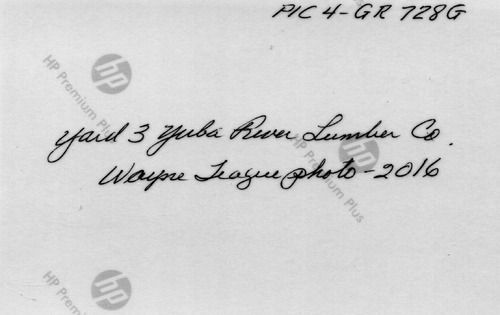 PIC 4-GR 728G
hp
HP Premium Plus
Yard 3 Yuba River Lumber Co.
hp
HP Premium Plus
Wayne Teague photo - 2016
hp
HP Premium